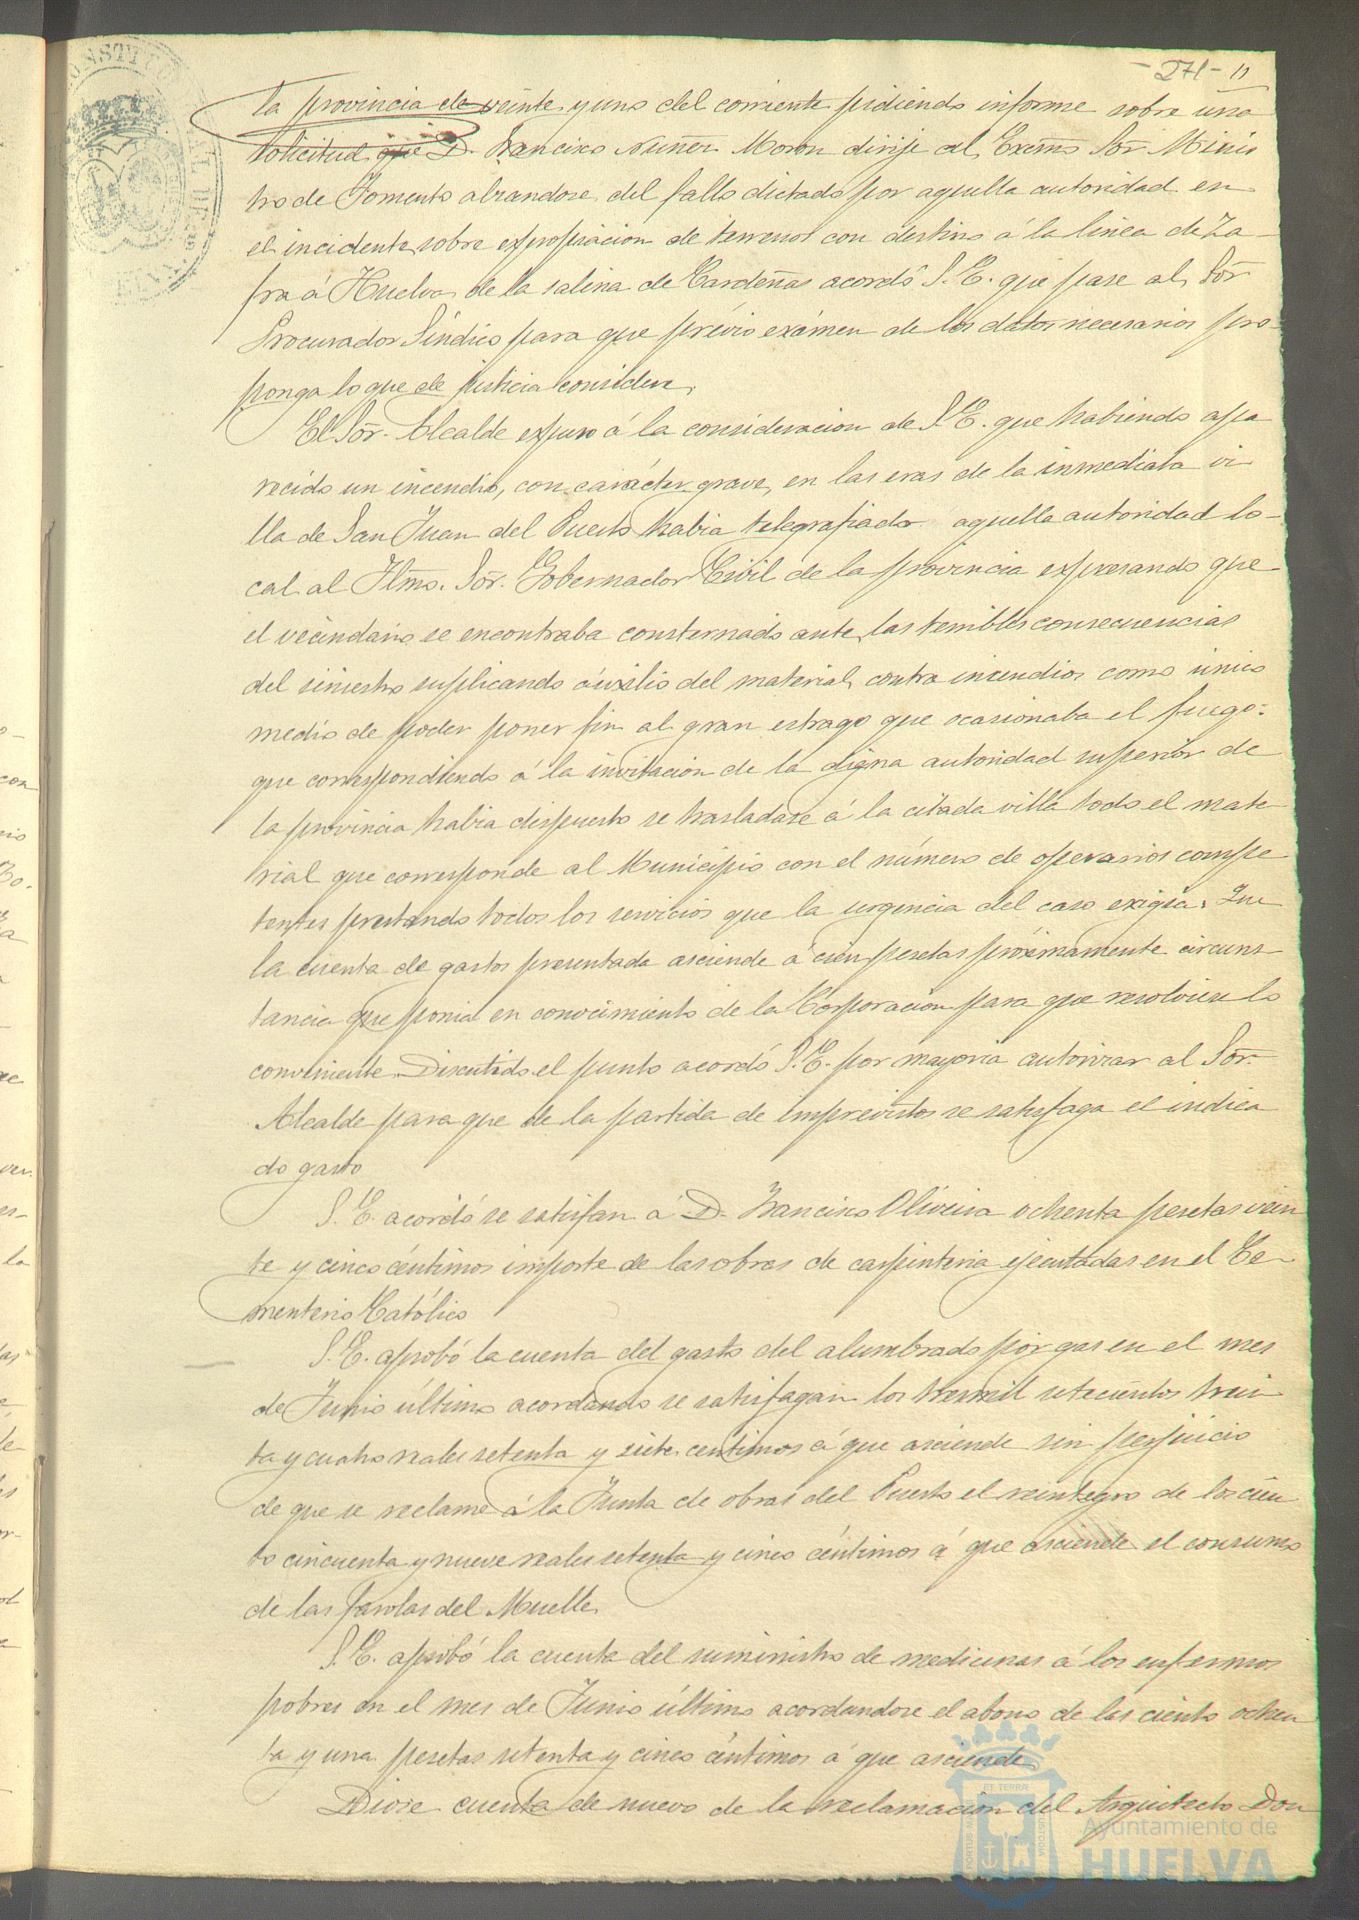 -271- 11
la provincia de veinte y uno del corriente pidiendo informe sobre una
solicitud que D. Francisco Nuñez Moron dirije al Excmo. Sor. Minis
tro de Fomento alzandose del fallo dictado por aquella autoridad en
el incidente sobre expropiacion de terrenos con destino á la linea de Za-
fra á Huelva de la salina de Cardeñas acordó S. E. que pase al Sor.
Procurador Síndico para que prévio exámen de los datos necesarios pro-
ponga lo que de justicia considere.
El Sor. Alcalde expuso á la consideracion de S. E. que habiendo apa
recido un incendio, con carácter grave, en las eras de la inmediata vi
lla de San Juan del Puerto habia telegrafiado aquella autoridad lo-
cal al Ilmo. Sor. Gobernador Civil de la provincia expresando que
el vecindario se encontraba consternado ante las temibles consecuencias
del siniestro suplicando áuxilio del material contra incendios como único
medio de poder poner fin al gran estrago que ocasionaba el fuego:
que correspondiendo á la invitacion de la digna autoridad superior de
la provincia habia dispuesto se trasladase á la citada villa todo el mate
rial que corresponde al Municipio con el número de operarios compe
tentes prestando todos los servicios que la urgencia del caso exigia. Que
la cuenta de gastos presentada asciende á cien pesetas próximamente circuns-
tancia que ponia en conocimiento de la Corporacion para que resolviese lo
conveniente. Discutido el punto acordó S. E. por mayoria autorizar al Sor.
Alcalde para que de la partida de imprevistos se satisfaga el indica
do gasto
S. E. acordó se satisfan á D. Francisco Oliveira ochenta pesetas vein
te y cinco céntimos importe de las obras de carpinteria ejecutadas en el Ce-
menterio Católico
S. E. aprobó la cuenta del gasto del alumbrado por gas en el mes
de Junio último acordando se satisfagan los tresmil setecientos trein
ta y cuatro reales setenta y siete centimos á que asciende sin perjuicio
de que se reclame á la Junta de obras del Puerto el reintegro de los cien
to cincuenta y nueve reales setenta y cinco céntimos á que asciende el consumo
de las farolas del Muelle.
S. E. aprobó la cuenta del suministro de medicinas á los enfermos
pobres en el mes de Junio último acordandose el abono de las ciento ochen
ta y una pesetas setenta y cinco céntimos á que asciende.
Dióse cuenta de nuevo de la reclamacion del Arquitecto Don
Ayuntamiento de
HUELVA